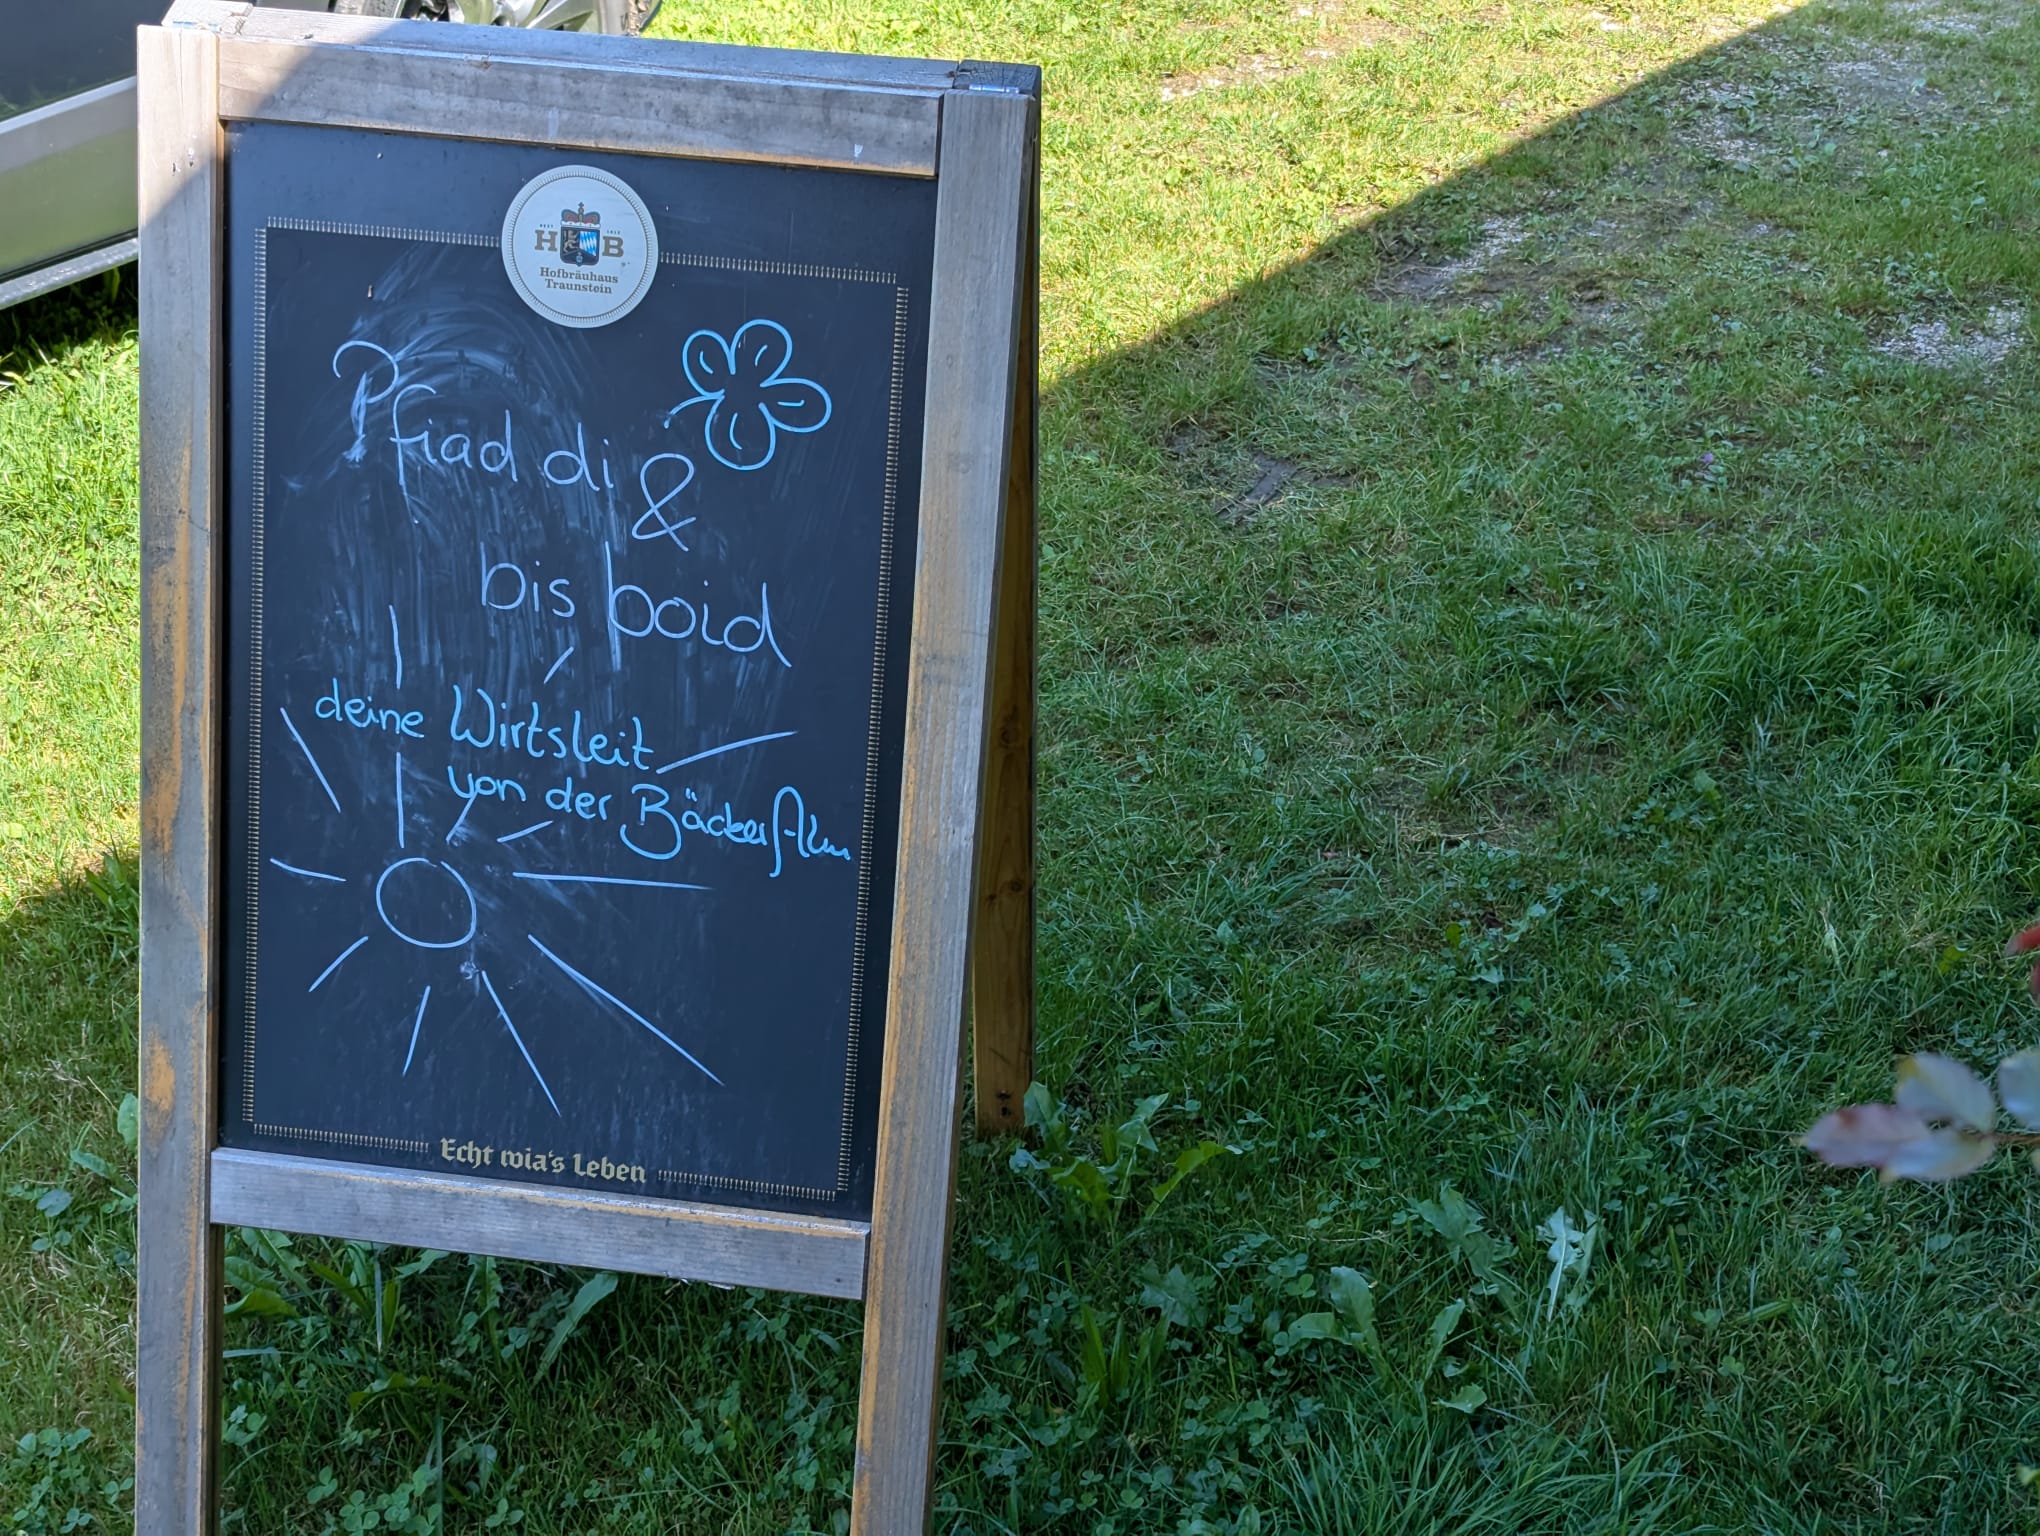 EST 1612
H B
Hofbräuhaus
Traunstein
Pfiad di
&
bis boid
deine Wirtsleit
von der BäckerAlm
Echt wia's Leben